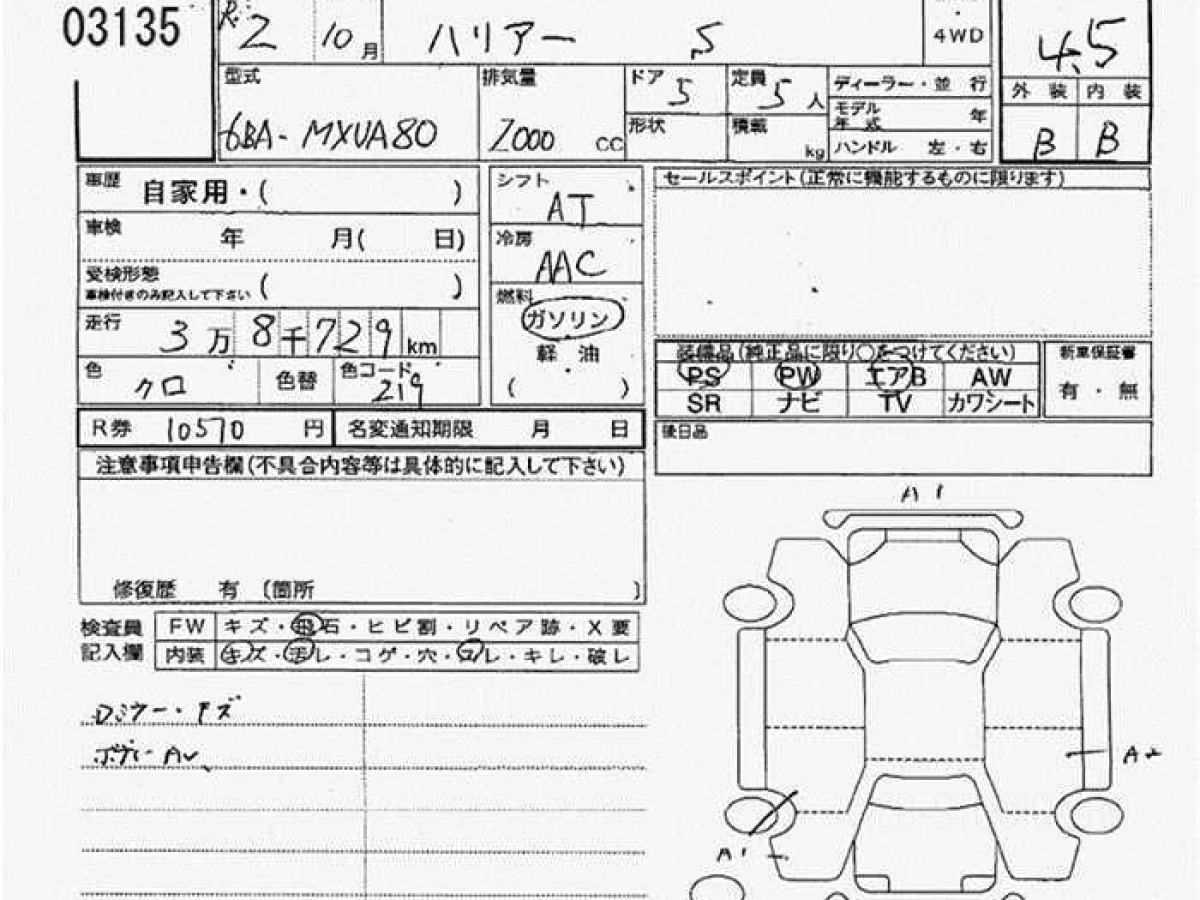 03135
R. 2 10月 ハリアー S
4WD
4.5
型式 6BA-MXUA80
排気量 2000 cc
ドア 5
定員 5 人
形状
積載 kg
ディーラー・並 行
モデル年式 年
ハンドル 左・右
外 装 内 装
B B
車歴 自家用・( )
車検 年 月( 日)
受検形態
車検付きのみ記入して下さい ( )
走行 3万8千729km
色 クロ 色替 色コード 219
シフト AT
冷房 AAC
燃料 ガソリン
軽 油
( )
セールスポイント(正常に機能するものに限ります)
装備品(純正品に限り〇をつけてください)
PS PW エアB AW
SR ナビ TV カワシート
新車保証書
有・無
後日品
R券 10570 円 名変通知期限 月 日
注意事項申告欄(不具合内容等は具体的に記入して下さい)
修復歴 有 〔箇所 〕
検査員記入欄
FW キズ・飛石・ヒビ割・リペア跡・X要
内装 キズ・汚レ・コゲ・穴・コレ・キレ・破レ
ボディーAW
A1
A2
A1